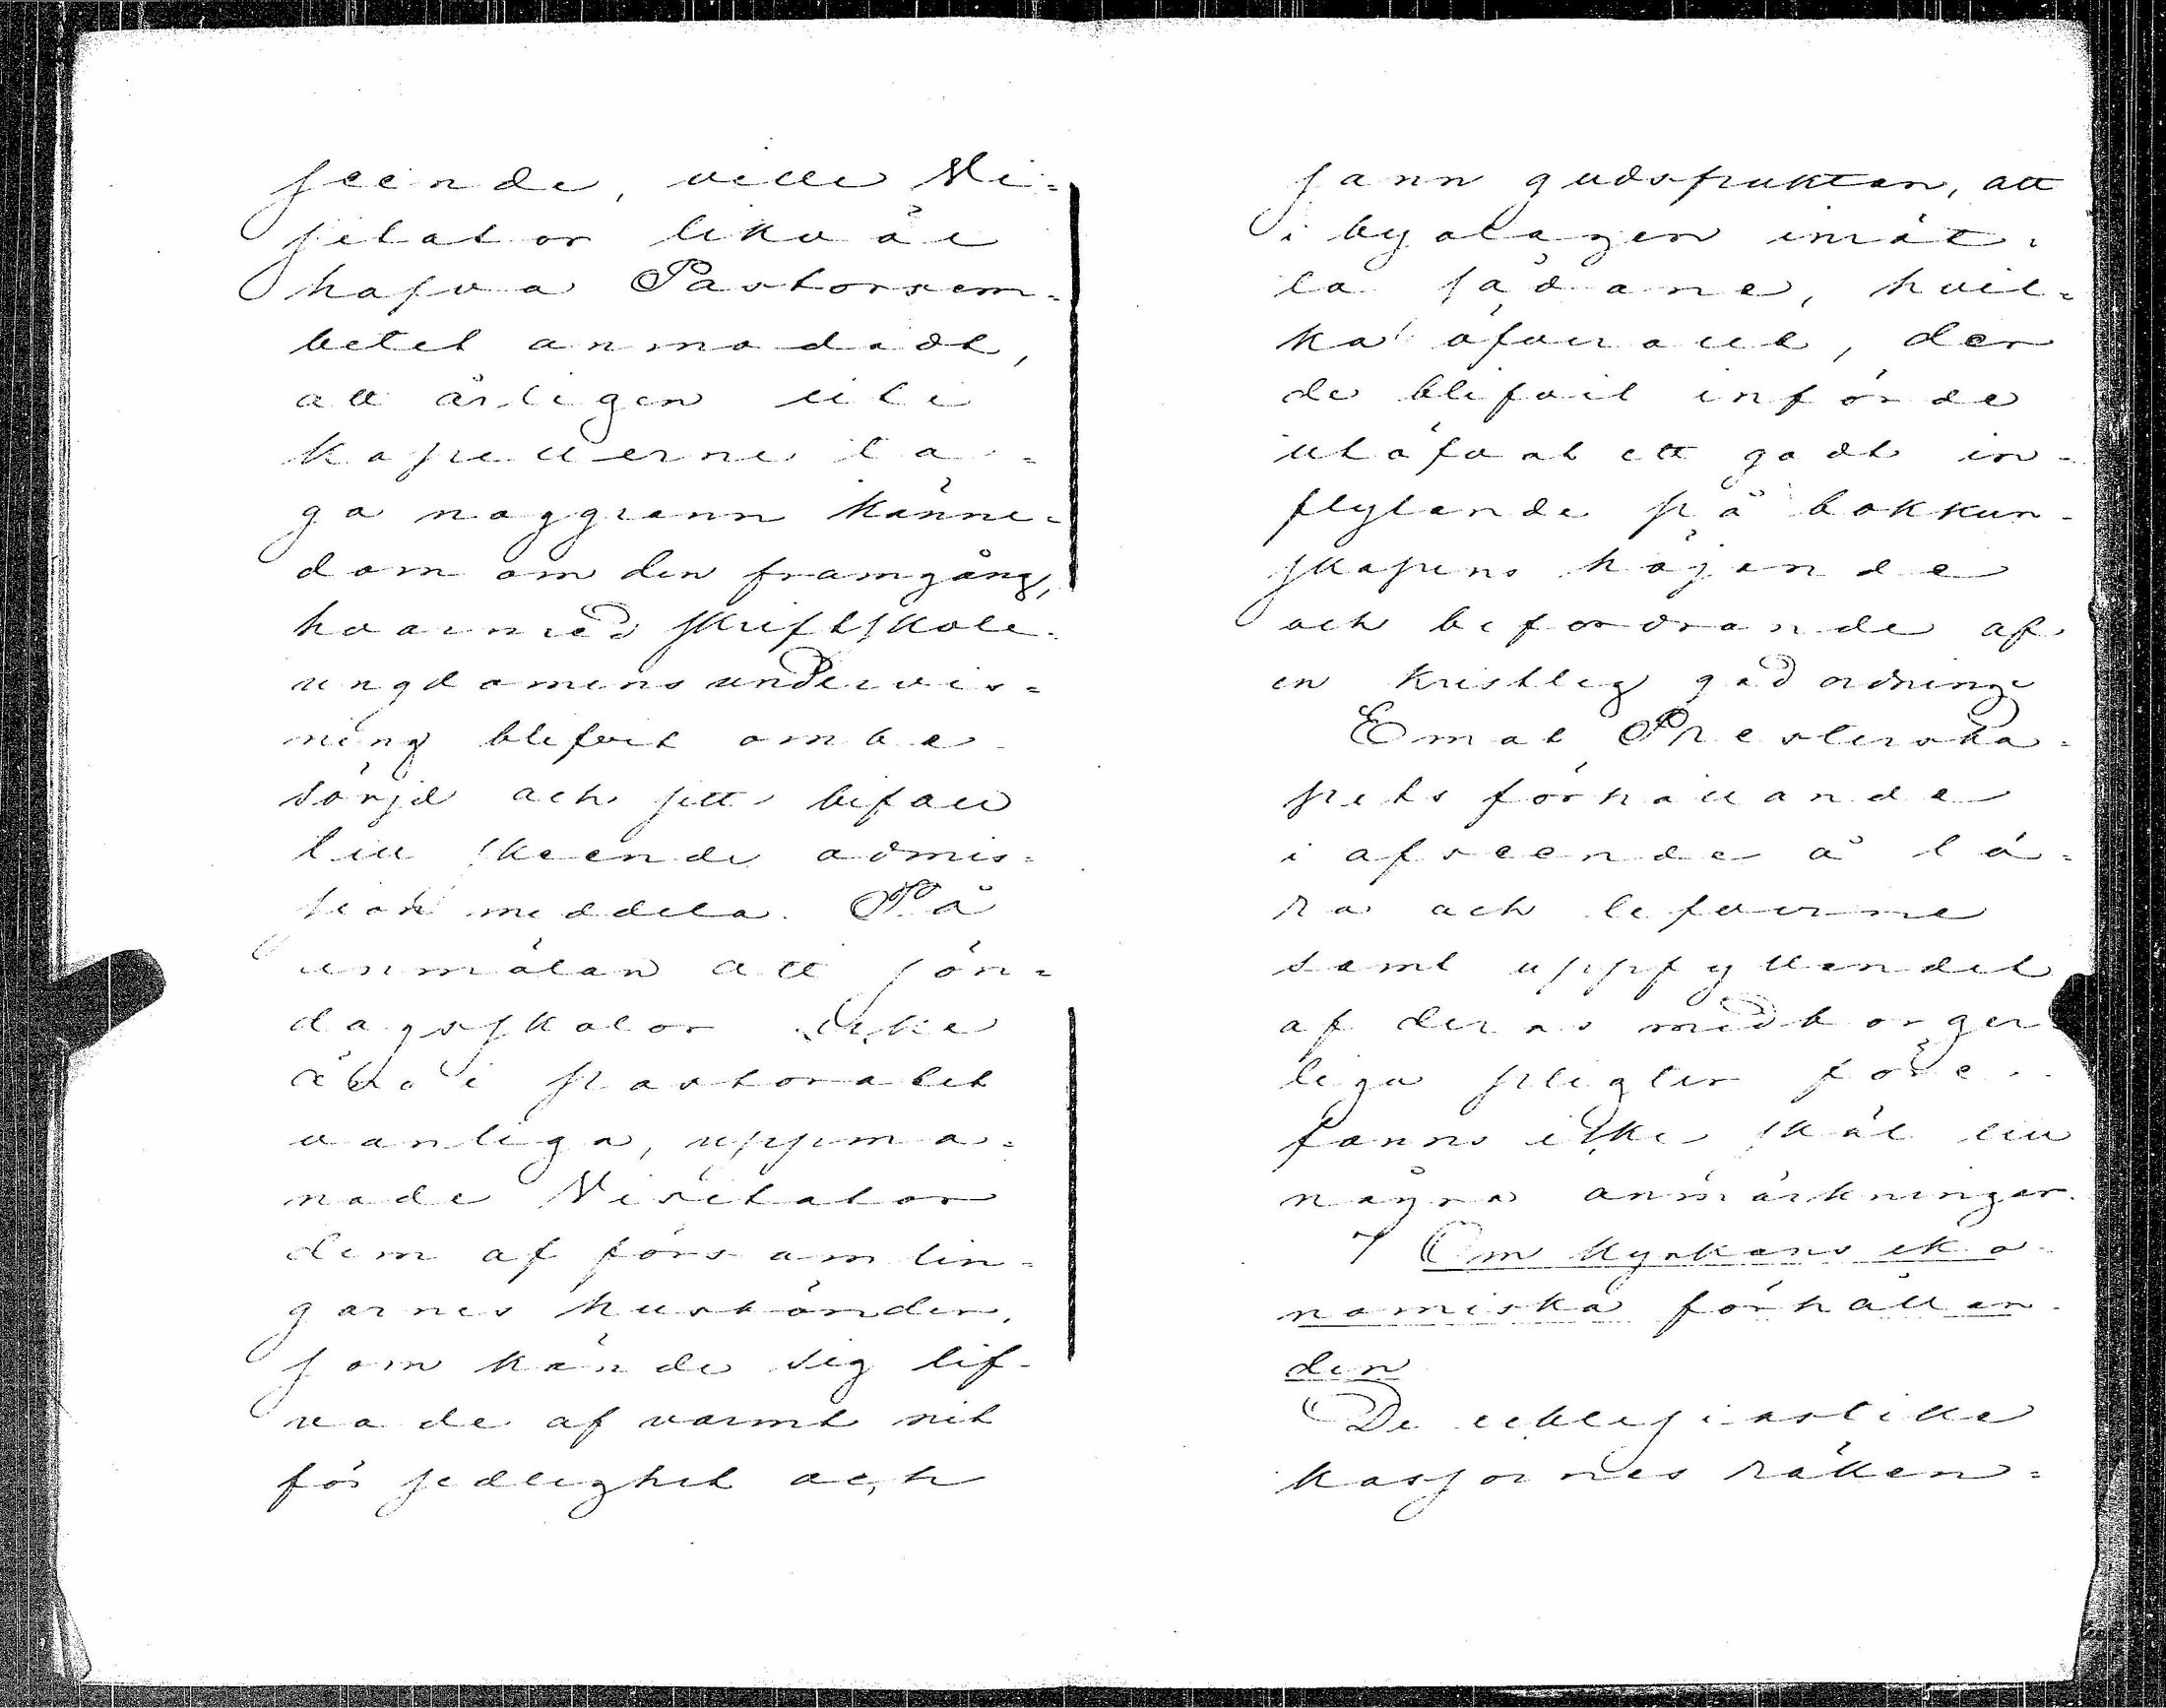 seende, ville Vi=
sitator likväl
hafva Pastorsem=
betet anmodadt,
att årligen uti
kapellerne ta=
ga noggrann känne=
dom om den framgång,
hvarmed skriftskole-
ungdomens undervis=
ning blifvit ombe-
sörjd och sitt bifall
till skeende admis=
sion meddela. På
anmälan att sön=
dagsskolor icke
äro i pastoratet
vanliga, uppma=
nade Visitator
dem af försam lin=
garnes husbönder,
som kände sig lif-
vade af varmt nit
för sedlighet och
sann gudsfruktan, att
i byalagen inrät=
ta sådane, hvil=
ka öfverallt, der
de blifvit införde
utöfvat ett godt in-
flytande på bokkun-
skapens höjande
och befordrande af
en kristlig god ordning
Emot Presterska=
pets förhållande
i afseende å lä=
ra och lefverne
samt uppfyllandet
af deras medborger
liga pligter före-
fanns icke skäl till
några anmärkningar.
7 Om kyrkans eko-
nomiska förhållan-
den
De ecklesiastika
kassornes räken=